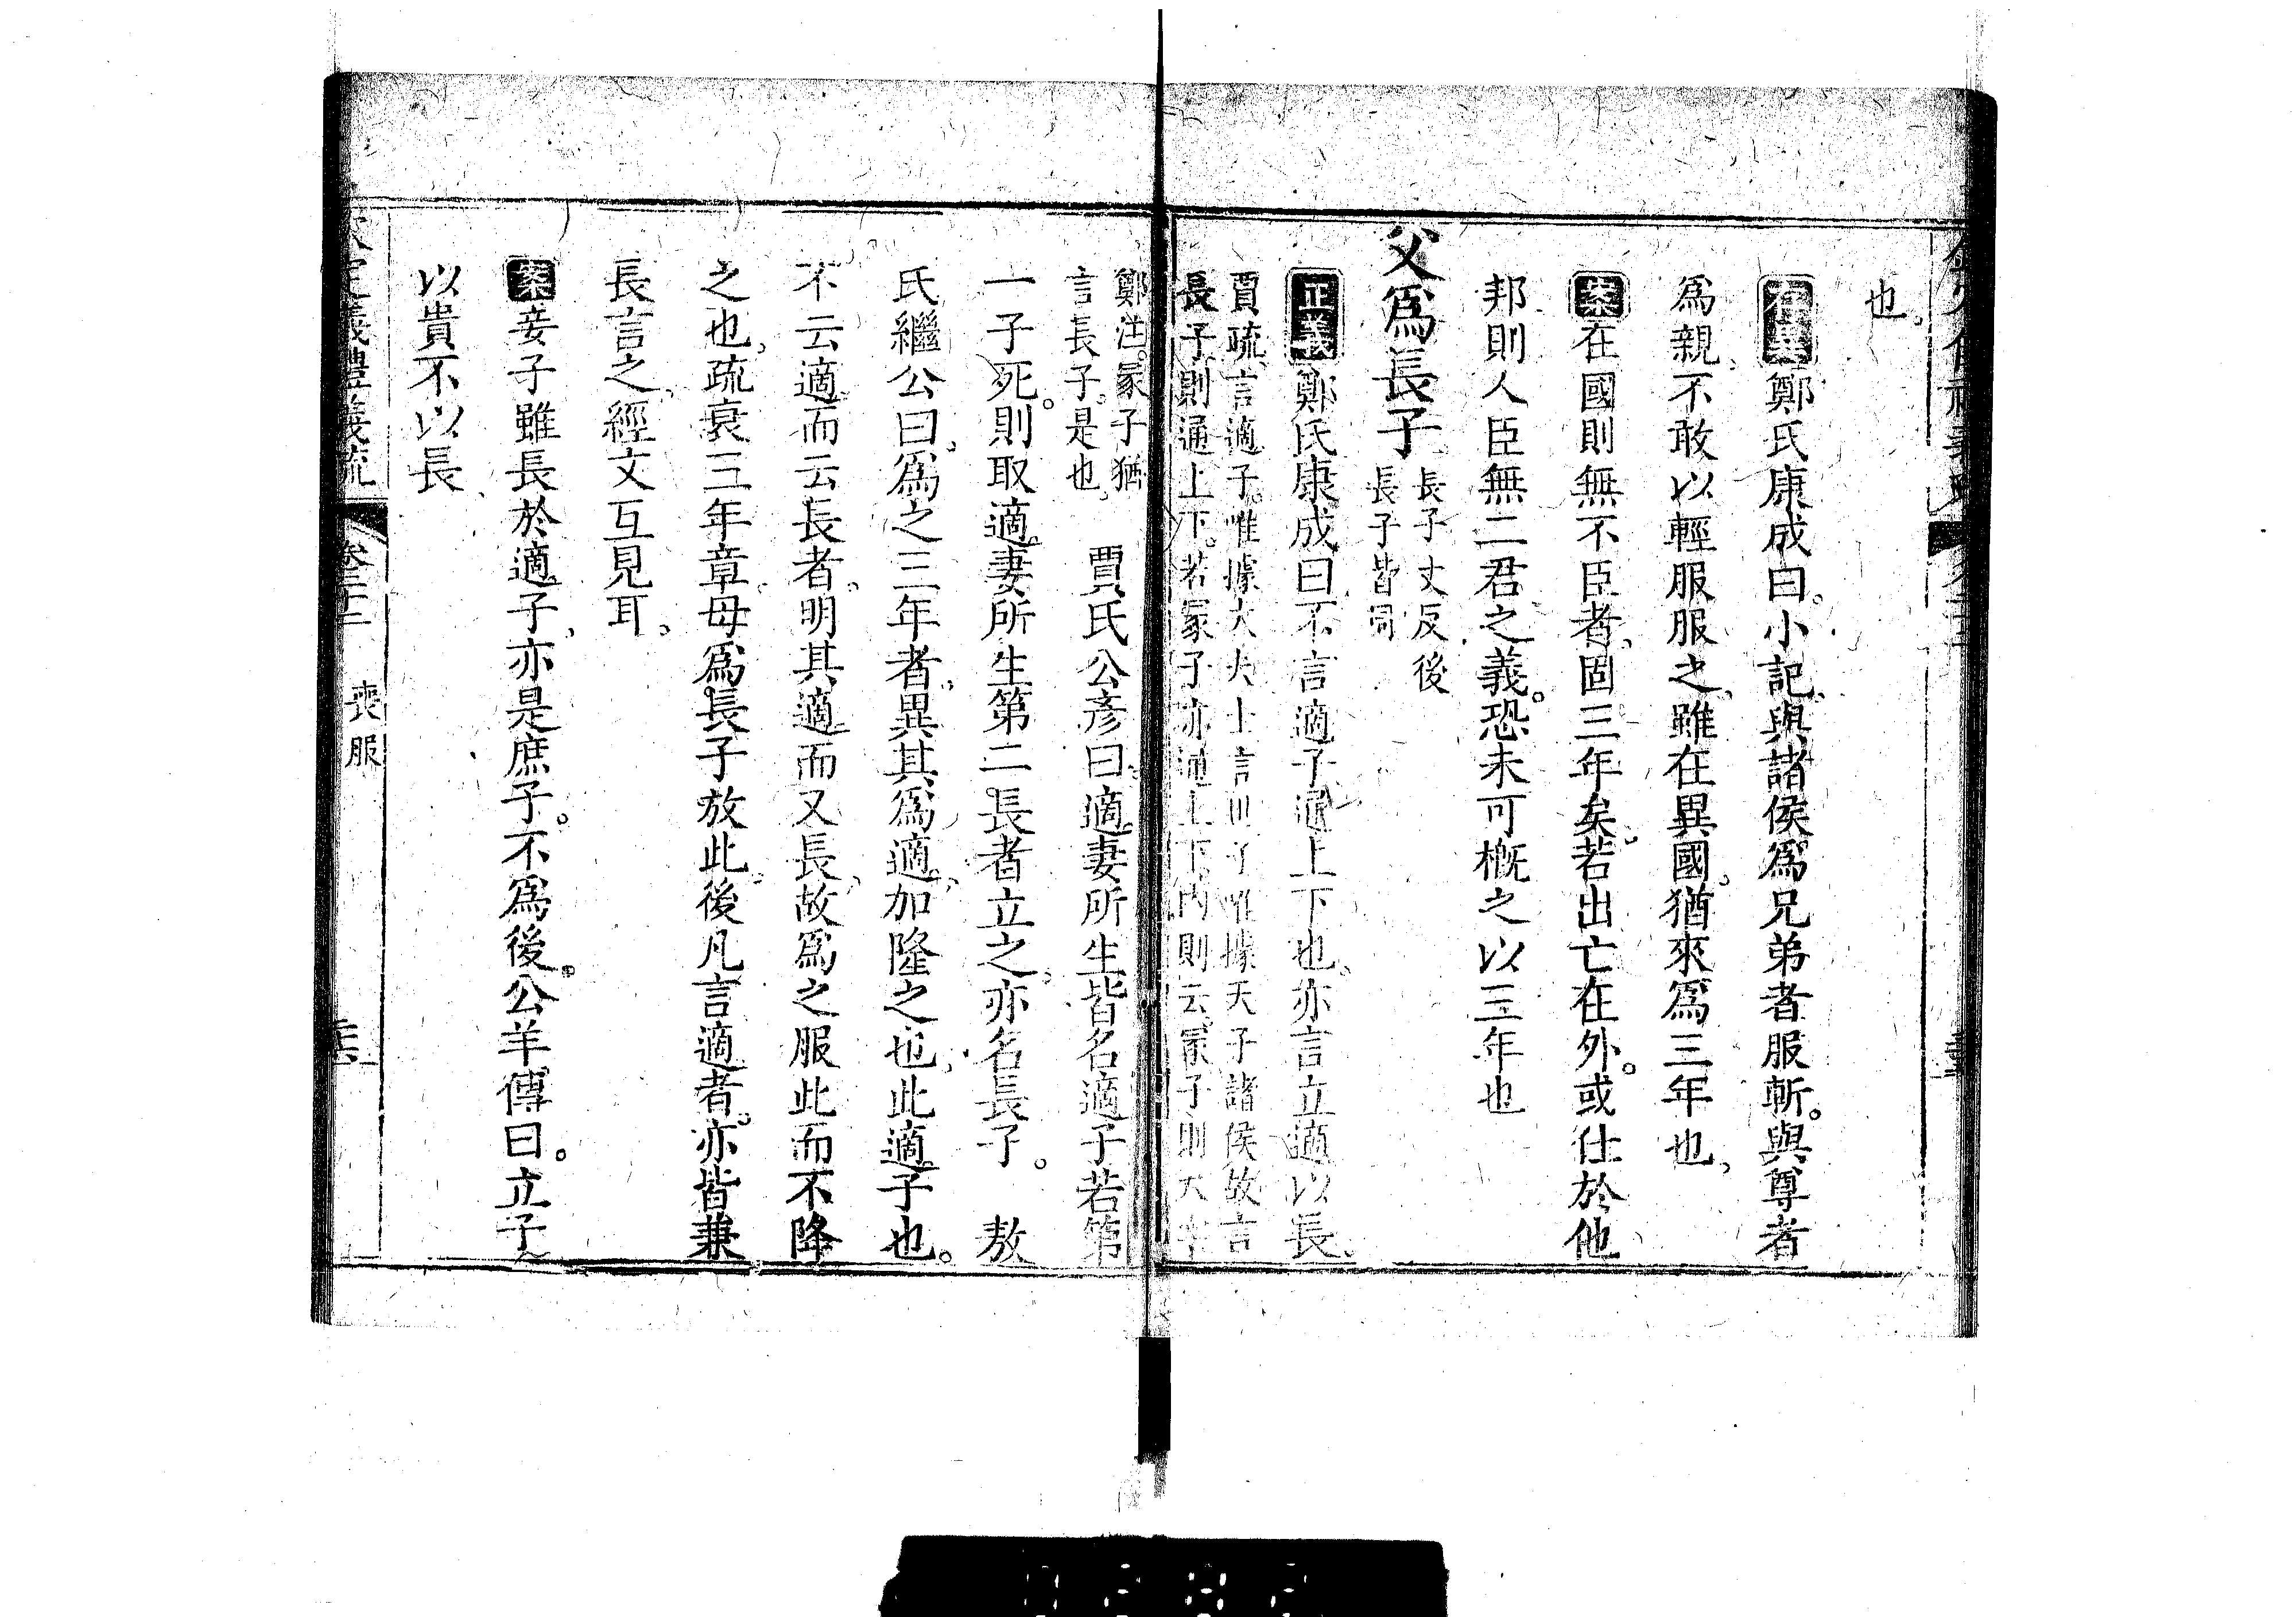 也。
存異鄭氏康成曰。小記與諸侯爲兄弟者服斬。與尊者
爲親不敢以輕服服之雖在異國猶來爲三年也
案在國則無不臣者固三年矣若出亡在外。或仕於他
邦則人臣無二君之義。恐未可槪之以三年也
父爲長子
長子丈反後
長子皆同
正義鄭氏康成曰不言適子通上下也亦言立適以長
賈疏言適子惟據大夫士言世子惟據天子諸侯故言
長子則通上下。若冢子亦通上下內則云冢子則大牢
鄭注。冢子猶
言長子。是也
賈氏公彥曰。適妻所生皆名適子若第
一子死。則取適妻所生第二長者立之亦名長子。 敖
氏繼公曰爲之三年者異其爲適加隆之也此適子也。
不云適而云長者。明其適而又長故爲之服此而不降
之也疏衰三年章母爲長子放此後凡言適者。亦皆兼
長言之經文互見耳
案妾子雖長於適子亦是庶子。不爲後。公羊傳曰。立子
以貴不以長
欽定義禮義疏 卷二十二 喪服